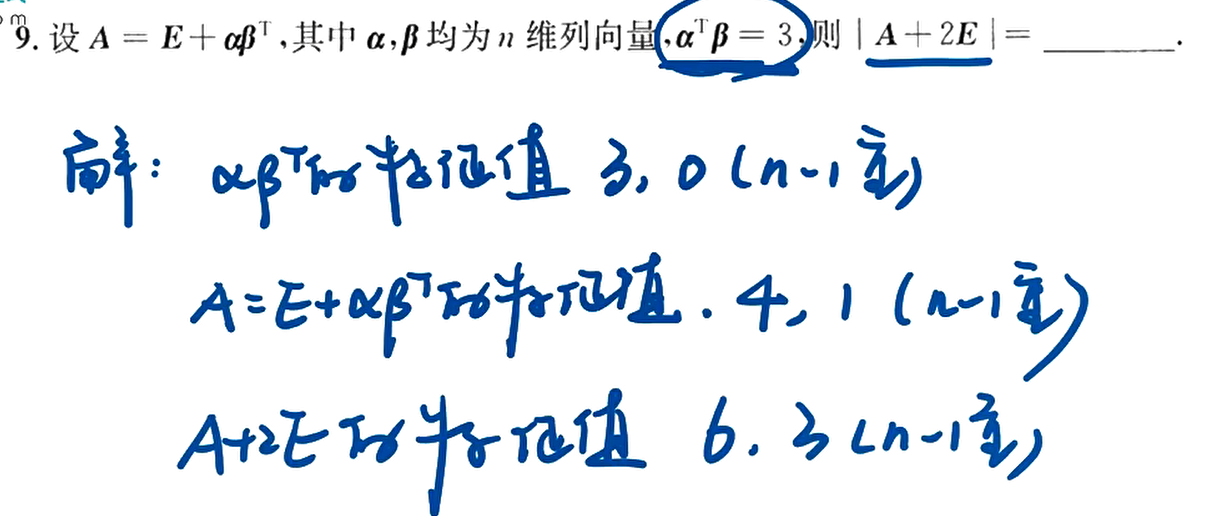 9. 设 A = E + αβᵀ,其中 α,β 均为 n 维列向量,αᵀβ = 3,则 | A + 2E | = ________.
解: αβᵀ的特征值 3, 0 (n-1重)
A=E+αβᵀ的特征值. 4, 1 (n-1重)
A+2E的特征值 6. 3 (n-1重)